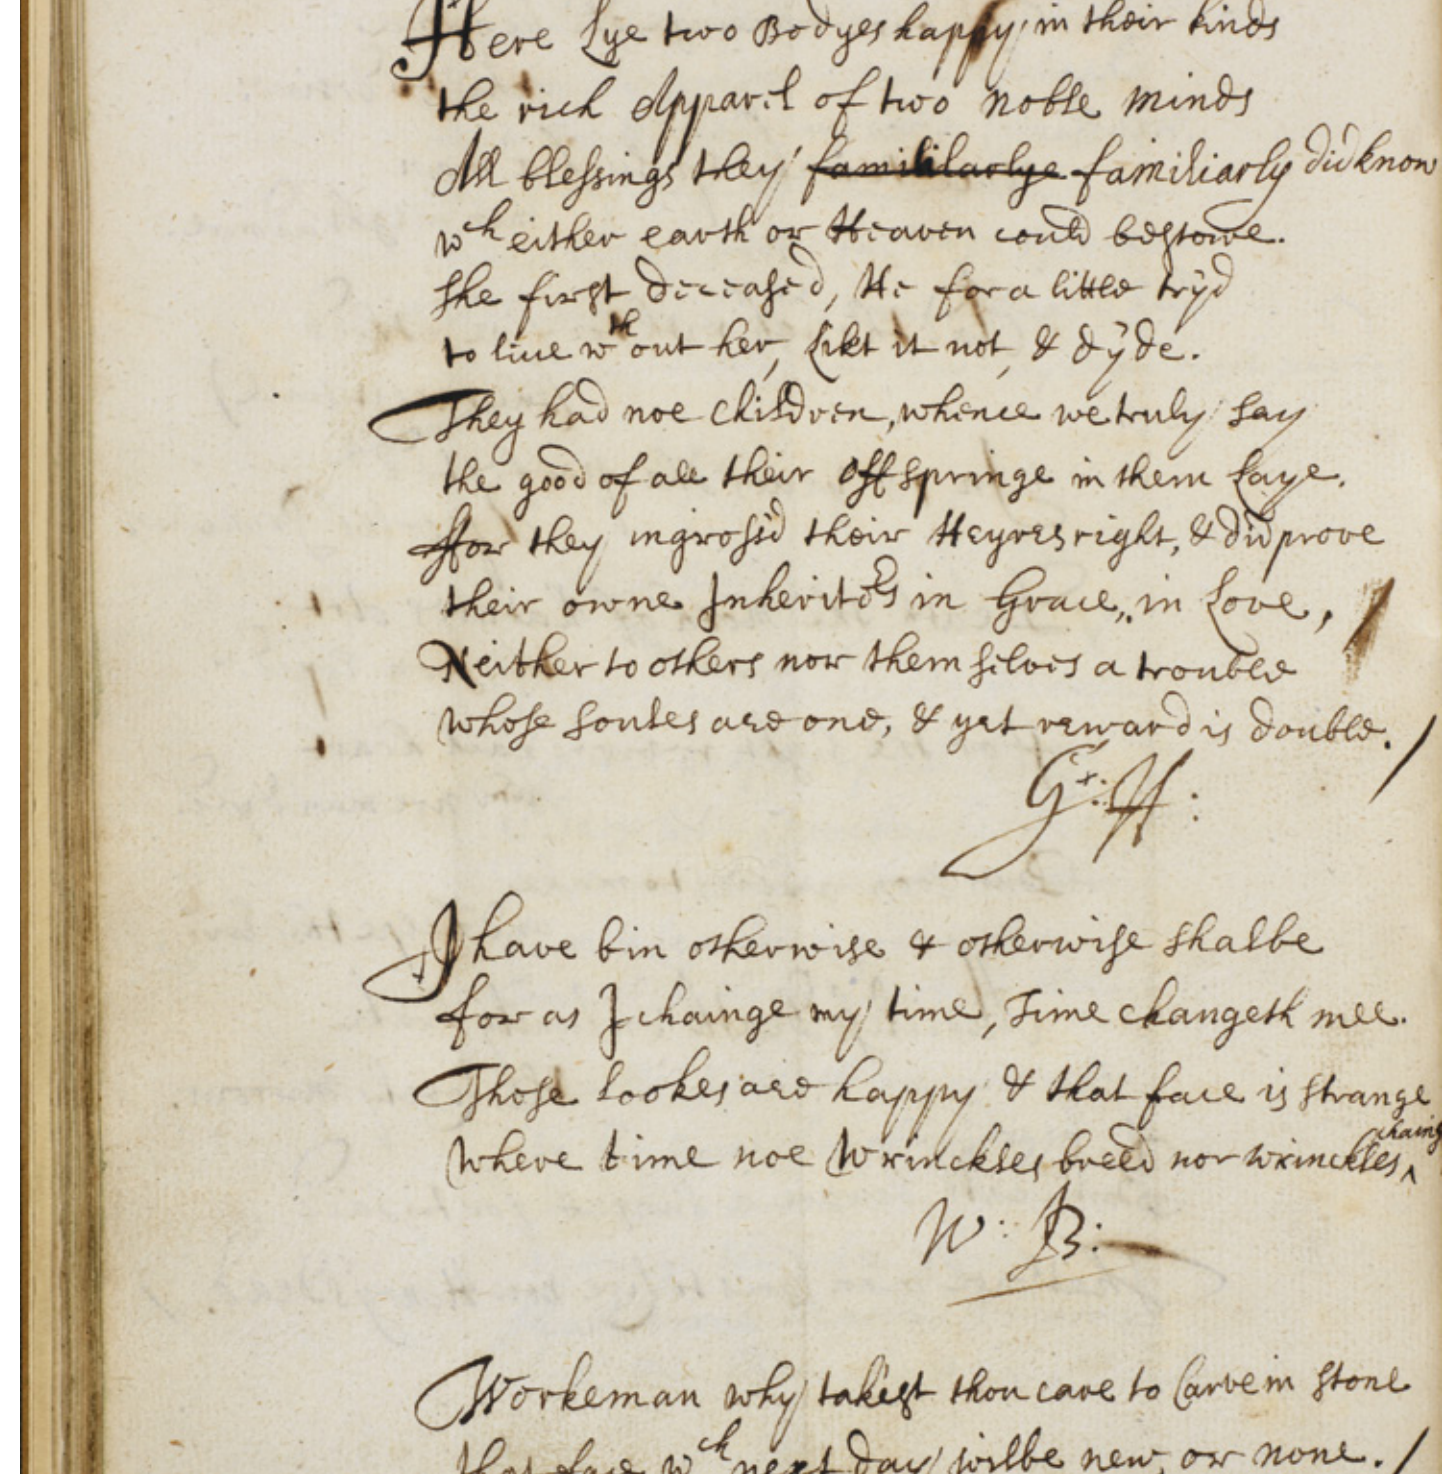 Here Lye two Bodyes happy in their kinds
the rich Apparel of two noble minds
All blessings they famililarlye familiarly did know
wch either earth or Heaven could bestowe.
she first deceased, He for a little tryd
to live wthout her, likt it not, & dyde.
They had noe children, whence we truly say
the good of all their offspringe in them Laye.
For they ingross'd their Heyres right, & did prove
their owne Inheritors in Grace, in Love,
Neither to others nor themselves a trouble
whose soules are one, & yet reward is double. /
G: H:
I have bin otherwise & otherwise shalbe
for as I chainge my time, Time changeth mee.
Those lookes are happy & that face is strange
where time noe wrinckles breed nor wrinckles chaing
W: B:
Workeman why takest thou care to Carve in stone
that face wch next day wilbe new, or none. /